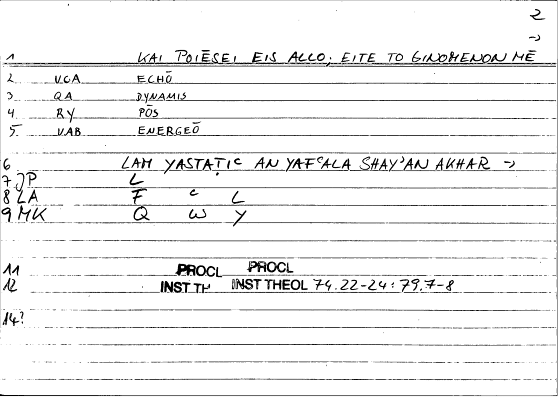 2
→
1 KAI POIĒSEI EIS ALLO; EITE TO GINOMENON MĒ
2 VCA ECHŌ
3 QA DYNAMIS
4 RY PŌS
5. VAB ENERGEŌ
6 LAM YASTAṬIᶜ AN YAFᶜALA SHAY'AN AKHAR →
7 JP L
8 LA F ᶜ L
9 MK Q W Y
11 PROCL PROCL
12 INST TH INST THEOL 74.22-24: 79.7-8
14?